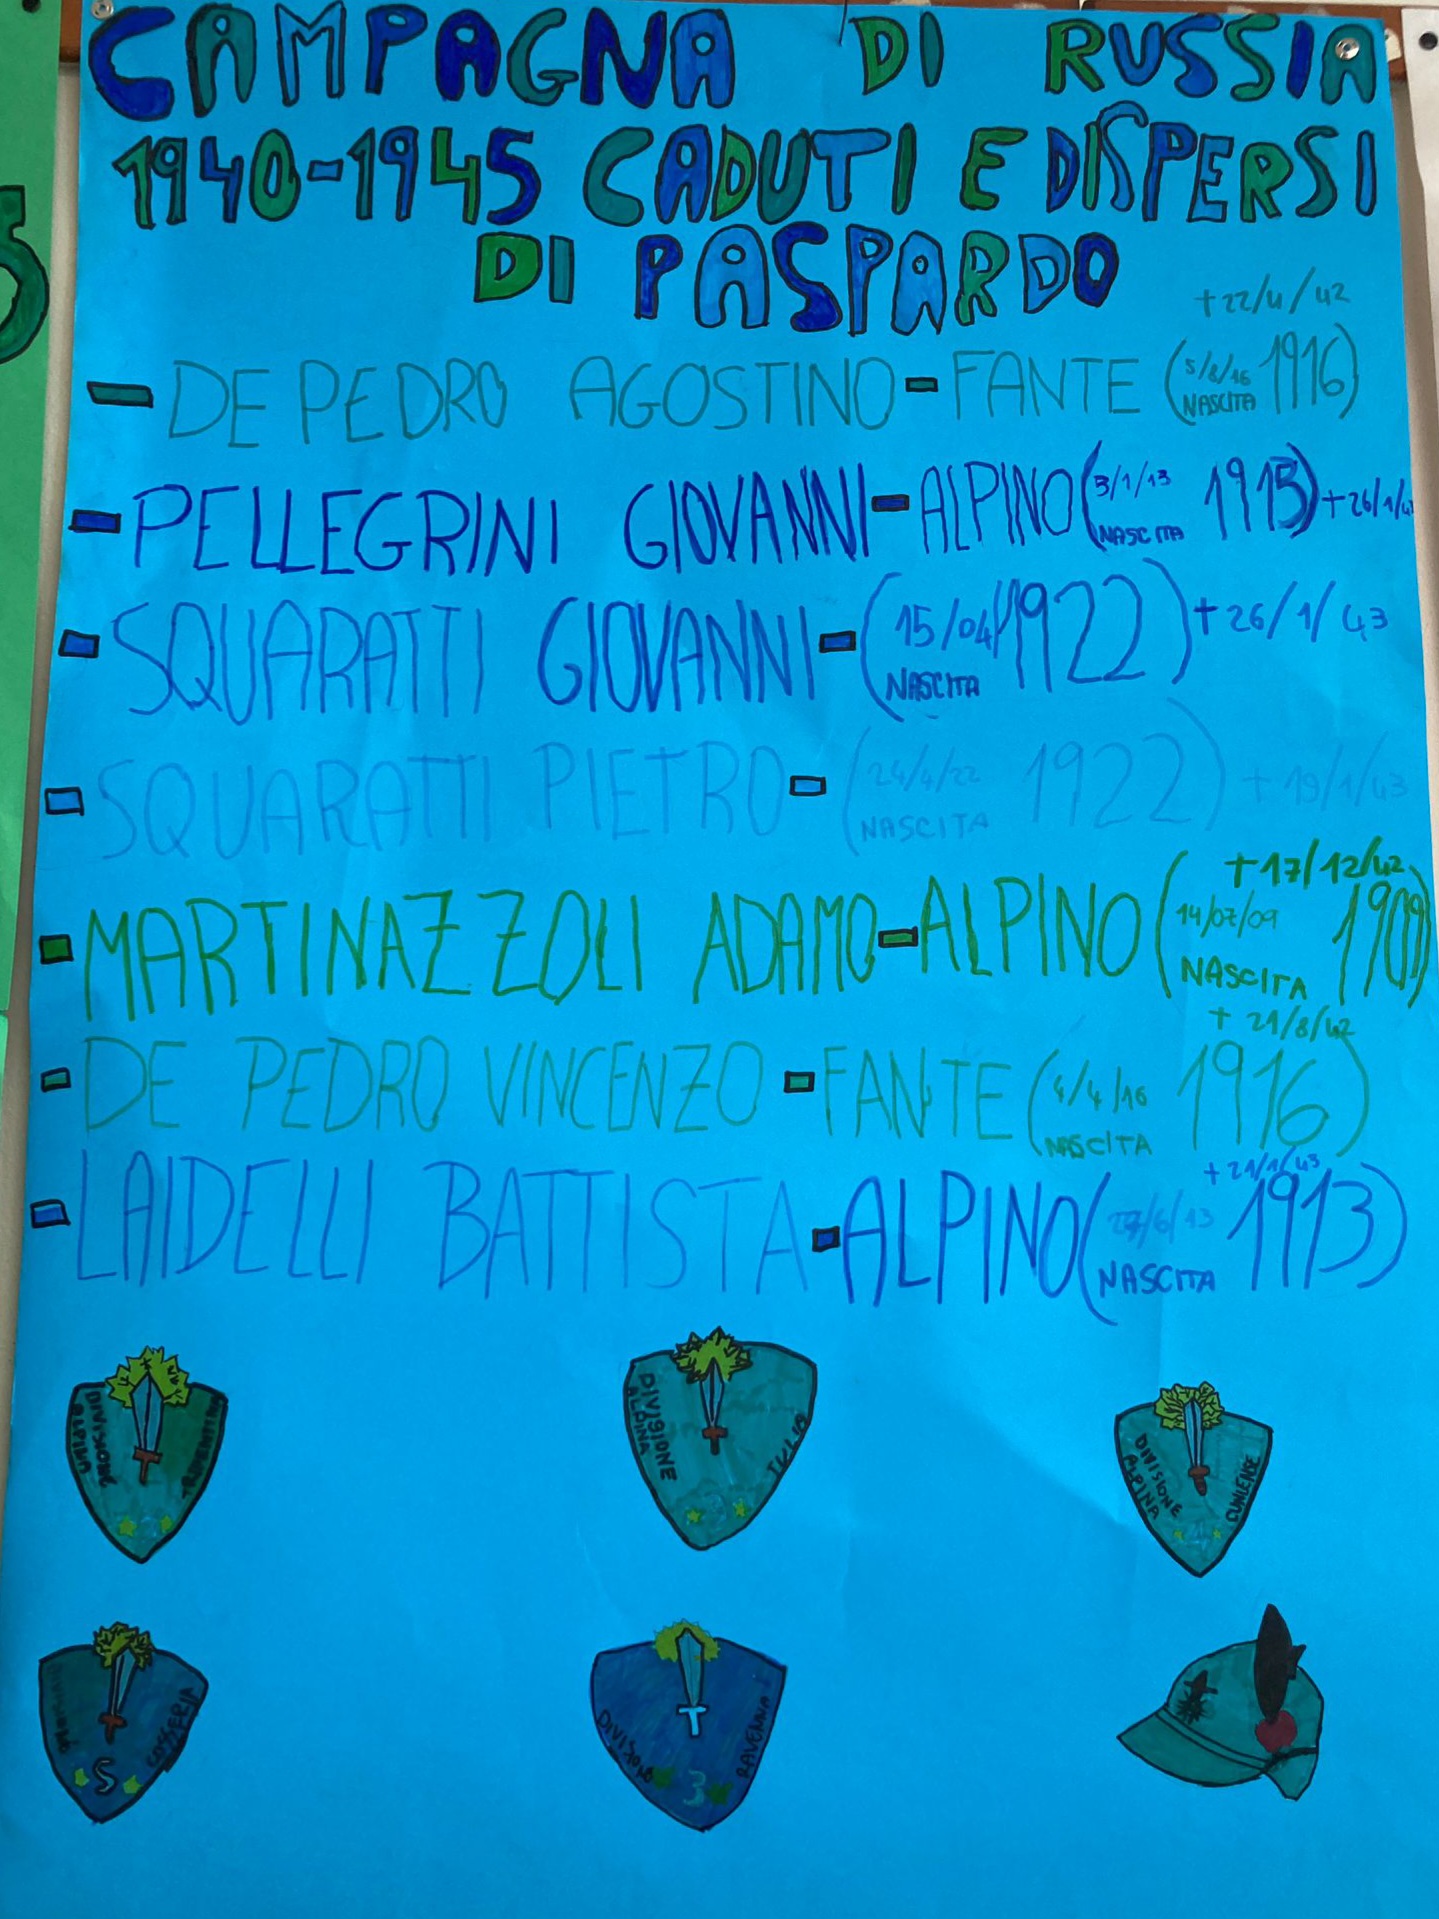 CAMPAGNA DI RUSSIA
1940-1945 CADUTI E DISPERSI
DI PASPARDO
+22/4/42
- DE PEDRO AGOSTINO - FANTE (5/8/16 NASCITA 1916)
- PELLEGRINI GIOVANNI - ALPINO (3/1/13 NASCITA 1913) +26/1/43
- SQUARATTI GIOVANNI - (15/04/1922 NASCITA) +26/1/43
- SQUARATTI PIETRO - (24/4/22 NASCITA 1922) +19/1/43
+17/12/42
- MARTINAZZOLI ADAMO - ALPINO (14/07/09 NASCITA 1909)
+21/8/42
- DE PEDRO VINCENZO - FANTE (4/4/16 NASCITA 1916)
+21/1/43
- LAIDELLI BATTISTA - ALPINO (/6/13 NASCITA 1913)
DIVISIONE ALPINA
DIVISIONE ALPINA JULIA
DIVISIONE ALPINA CUNEENSE
COSSERIA
5
RAVENNA
3